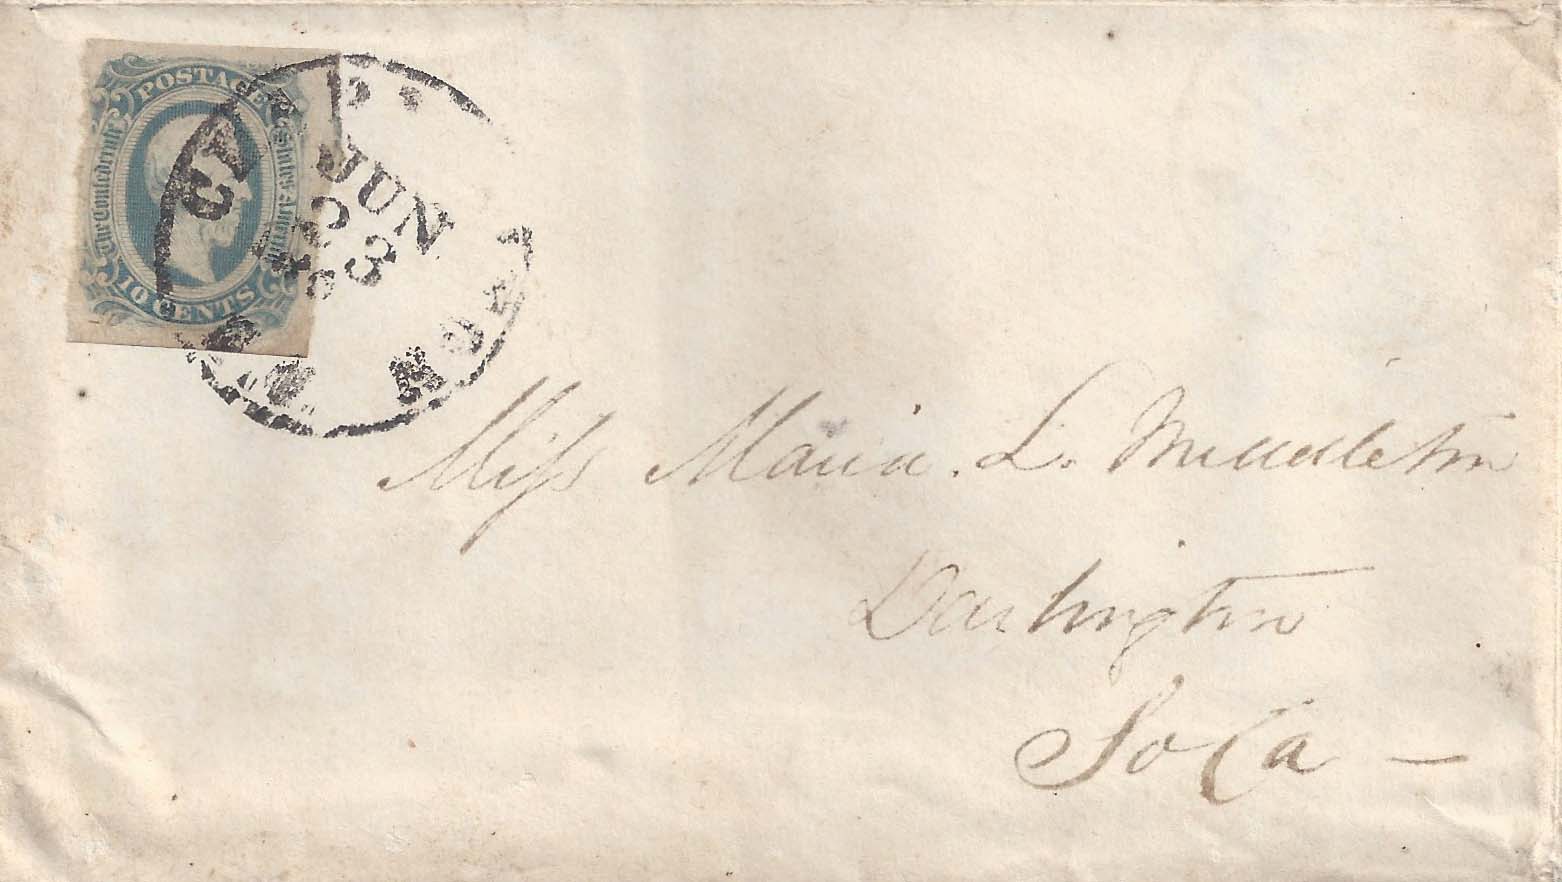 POSTAGE
The Confederate States America
10 CENTS
JUN
23
Miss Maria. L. Middleton
Darlington
So Ca —